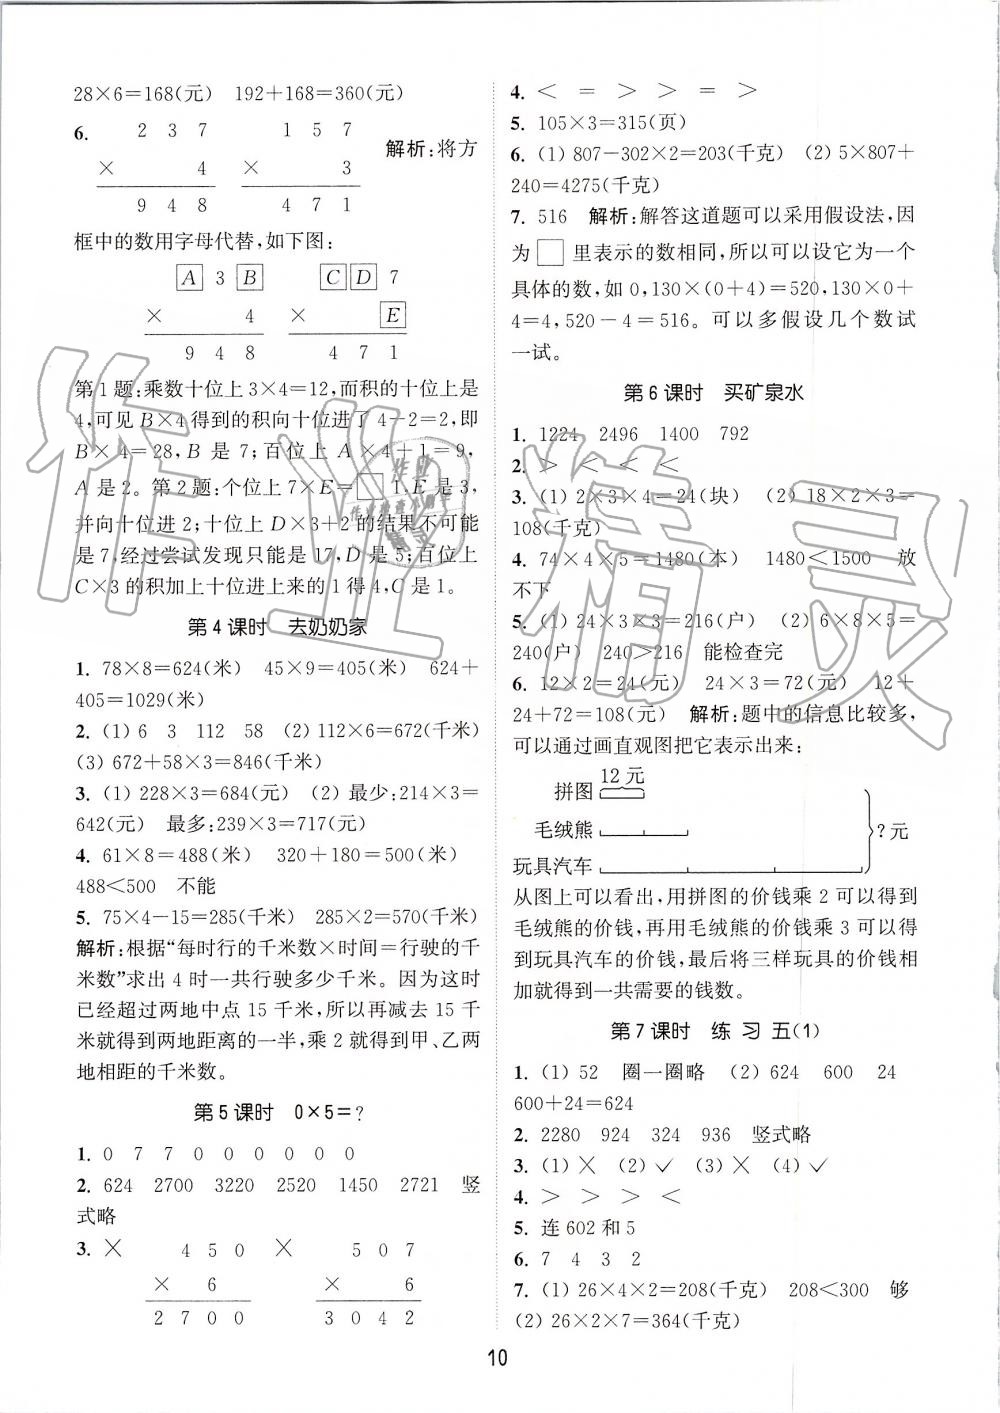 28×6=168(元) 192+168=360(元)
6. 2 3 7   1 5 7
解析:将方
× 4   × 3
9 4 8   4 7 1
框中的数用字母代替,如下图:
A 3 B   C D 7
× 4   × E
9 4 8   4 7 1
第1题:乘数十位上3×4=12,而积的十位上是
4,可见B×4得到的积向十位进了4-2=2,即
B×4=28,B是7;百位上A×4+1=9,
A是2。第2题:个位上7×E=□1,E是3,
并向十位进2;十位上D×3+2的结果不可能
是7,经过尝试发现只能是17,D是5;百位上
C×3的积加上十位进上来的1得4,C是1。
第4课时 去奶奶家
1. 78×8=624(米) 45×9=405(米) 624+
405=1029(米)
2. (1) 6 3 112 58 (2) 112×6=672(千米)
(3) 672+58×3=846(千米)
3. (1) 228×3=684(元) (2) 最少:214×3=
642(元) 最多:239×3=717(元)
4. 61×8=488(米) 320+180=500(米)
488<500 不能
5. 75×4-15=285(千米) 285×2=570(千米)
解析:根据“每时行的千米数×时间=行驶的千
米数”求出4时一共行驶多少千米。因为这时
已经超过两地中点15千米,所以再减去15千
米就得到两地距离的一半,乘2就得到甲、乙两
地相距的千米数。
第5课时 0×5=?
1. 0 7 7 0 0 0 0 0 0
2. 624 2700 3220 2520 1450 2721 竖
式略
3. × 4 5 0   × 5 0 7
× 6   × 6
2 7 0 0   3 0 4 2
4. < = > > = >
5. 105×3=315(页)
6. (1) 807-302×2=203(千克) (2) 5×807+
240=4275(千克)
7. 516 解析:解答这道题可以采用假设法,因
为□里表示的数相同,所以可以设它为一个
具体的数,如0,130×(0+4)=520,130×0+
4=4,520-4=516。可以多假设几个数试
一试。
第6课时 买矿泉水
1. 1224 2496 1400 792
2. > < < <
3. (1) 2×3×4=24(块) (2) 18×2×3=
108(千克)
4. 74×4×5=1480(本) 1480<1500 放
不下
5. (1) 24×3×3=216(户) (2) 6×8×5=
240(户) 240>216 能检查完
6. 12×2=24(元) 24×3=72(元) 12+
24+72=108(元) 解析:题中的信息比较多,
可以通过画直观图把它表示出来:
12元
拼图
毛绒熊 ?元
玩具汽车
从图上可以看出,用拼图的价钱乘2可以得到
毛绒熊的价钱,再用毛绒熊的价钱乘3可以得
到玩具汽车的价钱,最后将三样玩具的价钱相
加就得到一共需要的钱数。
第7课时 练习五(1)
1. (1) 52 圈一圈略 (2) 624 600 24
600+24=624
2. 2280 924 324 936 竖式略
3. (1)× (2)✓ (3)× (4)✓
4. > > > <
5. 连602和5
6. 7 4 3 2
7. (1) 26×4×2=208(千克) 208<300 够
(2) 26×2×7=364(千克)
10
作业精灵